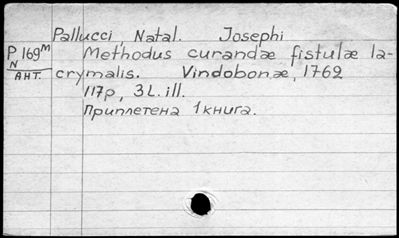 Pallucci, Natal. Josephi
P 169м Methodus curandæ fistulæ la-
N
АНТ. crymalis. Vindobonæ, 1762
117p, 3L. ill.
Приплетена 1 книга.